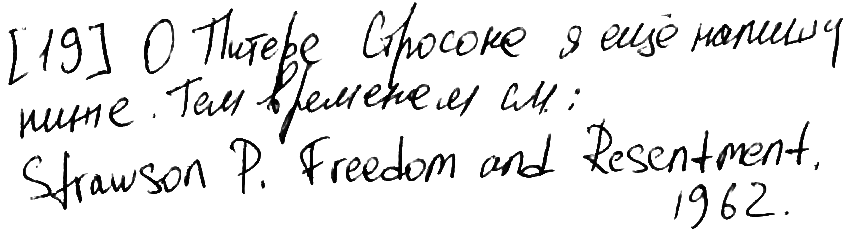 [19] О Питере Стросоне я ещё напишу
ниже. Тем временем см.:
Strawson P. Freedom and Resentment.
1962.